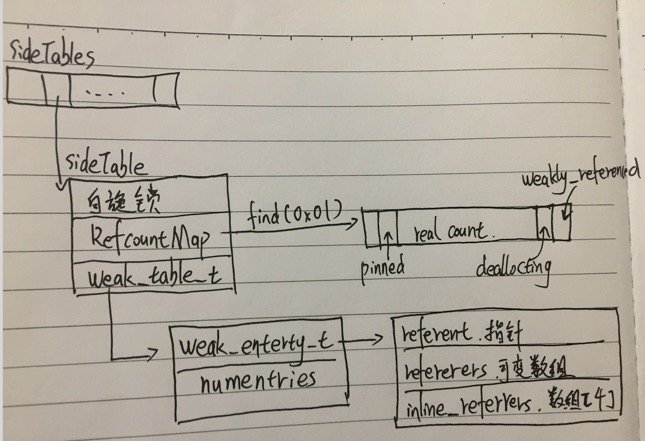 sideTables
.....
sideTable
自旋锁
RefcountMap
weak_table_t
find(0x01)
real count.
pinned
deallocting
weakly_referenced
weak_enterty_t
numentries
referent.指针
refererers.可变数组
inline_referrers.数组[4]